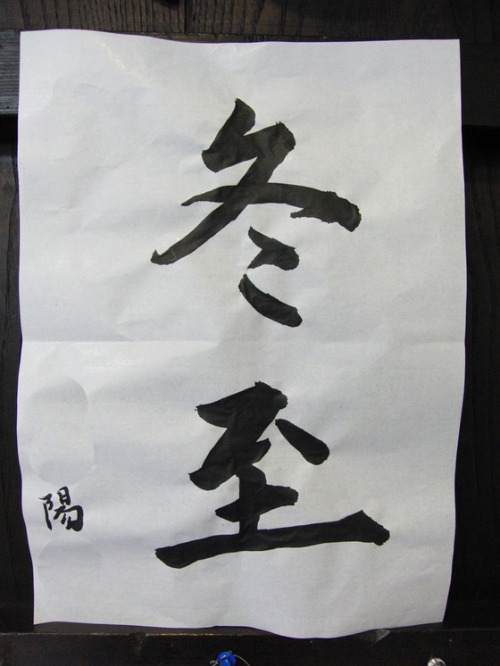 冬至
陽